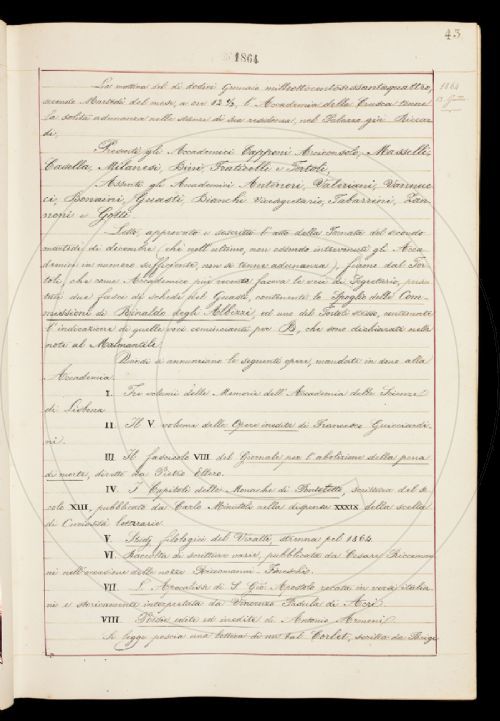 43
1864
La mattina del dì dodici Gennaio milleottocentosessantaquattro,
secondo Martedì del mese, a ore 12 ½, l'Accademia della Crusca tenne
la solita adunanza nelle stanze di sua residenza, nel Palazzo già Riccar
di.
1864
12. Genn.
Presenti gli Accademici Capponi Arciconsolo, Masselli,
Casella, Milanesi, Bini, Fraticelli e Tortoli,
Assenti gli Accademici Antinori, Valeriani, Vannuc
ci, Bonaini, Guasti, Bianchi Vicesegretario, Tabarrini, Zan
noni e Gotti.
Letto, approvato e sottoscritto l'atto della Tornata del secondo
martedì di dicembre (che nell'ultimo, non essendo intervenuti gli Acca
demici in numero sufficiente, non si tenne adunanza), furono dal Tor
toli, che come Accademico più recente faceva le veci di Segretario, presen
tate due fasci di schede del Guasti, contenente lo Spoglio delle Com
missioni di Rinaldo degli Albizzi, ed uno del Tortoli stesso, contenente
l'indicazione di quelle voci comincianti per B, che sono dichiarate nelle
note al Malmantile.
Quindi si annunziano le seguenti opere, mandate in dono alla
Accademia.
I. Tre volumi delle Memorie dell'Accademia delle Scienze
di Lisbona
II. Il V. volume delle Opere inedite di Francesco Guicciardi
ni.
III. Il fascicolo VIII del Giornale per l'abolizione della pena
di morte, diretto da Pietro Ellero.
IV. I Capitoli delle Monache di Pontetetto, scrittura del se
colo XIII, pubblicata da Carlo Minutoli nella dispensa XXXIX della scelta
di Curiosità letterarie.
V. Studj filologici del Vicalle, strenna pel 1864.
VI. Raccolta di scritture varie, pubblicata da Cesare Riccoman
ni nell'occasione delle nozze Riccomanni Fineschi.
VII. L'Apocalisse di S. Giō. Apostolo recata in versi italia
ni e storicamente interpretata da Vincenzo Padula di Acri.
VIII. Poesie edite ed inedite di Antonio
Si legge poscia una lettera di un tal Corbet, scritta da Parigi